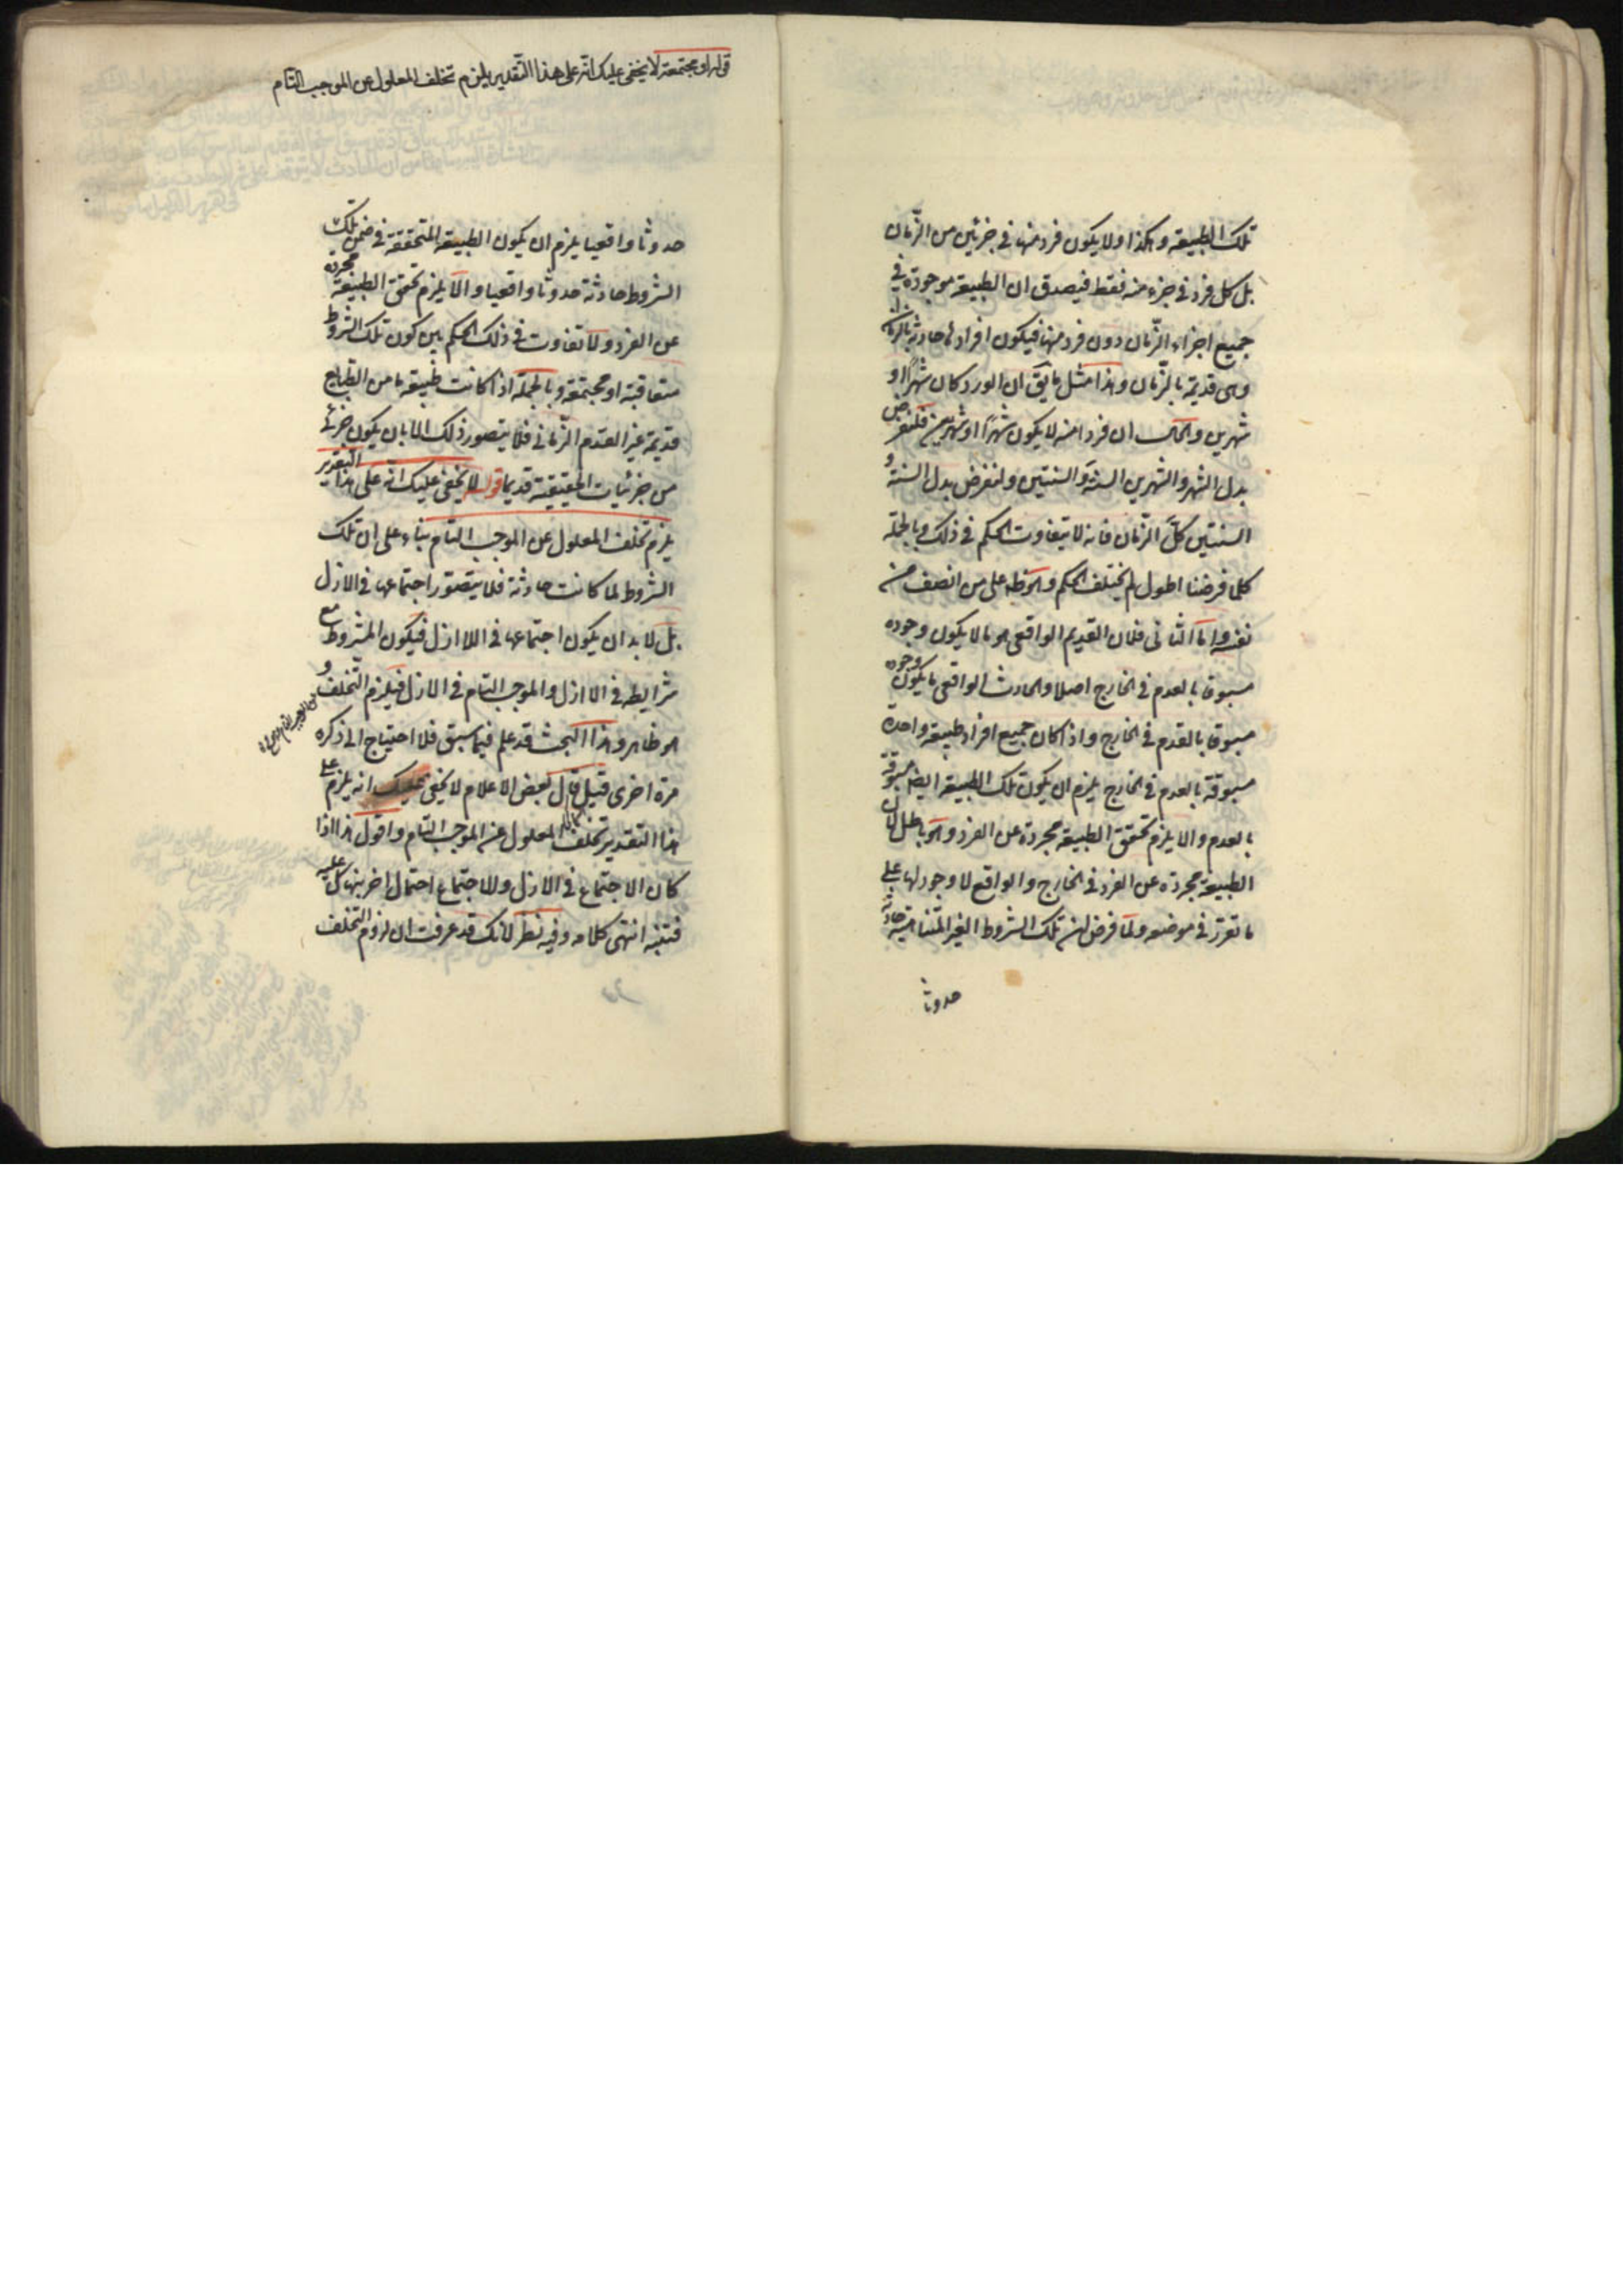 تلك الطبيعة وهكذا ولا يكون فرد منها في جزئين من الزّمان
بل كل فرد في جزء منه فقط فيصدق ان الطبيعة موجودة في
جميع اجزاء الزّمان دون فرد منها فيكون افرادها حادثة بالزمان
وهى قديمة بالزّمان وهذا مثل ما يقَ ان الورد كان شهرًا او
شهرين والحال ان فردا منه لا يكون شهرًا او شهرين فلنفرض
بدل الشهر والشهرين السنة والسنتين ولنفرض بدل السنة و
السنتين كلّ الزّمان فانه لا يتفاوت الحكم في ذلك وبالجملة
كلما فرضنا اطول لم يختلف الحكم والحوالة على من انصف من
نفسه واما الثانى فلان القديم الواقعى هو ما لا يكون وجوده
مسبوقا بالعدم في الخارج اصلا والحادث الواقعى ما يكون وجوده
مسبوقا بالعدم في الخارج واذا كان جميع افراد طبيعة واحدة
مسبوقة بالعدم في الخارج يلزم ان يكون تلك الطبيعة ايضا مسبوقة
بالعدم والا يلزم تحقق الطبيعة مجردة عن الفرد وهو باطل لان
الطبيعة مجردة عن الفرد في الخارج والواقع لا وجود لها على
ما تقرر في موضعه ولمّا فرض ان تلك الشروط الغير المتناهية حادثة
حدوثا
قوله او مجتمعة لا يخفى عليك انّه على هذا التقدير يلزم تخلف المعلول عن الموجب التام
حدوثا واقعيا يلزم ان يكون الطبيعة المتحققة في ضمن تلك
الشروط حادثة حدوثا واقعيا والّا يلزم تحقق الطبيعة مجردة
عن الفرد ولا تفاوت في ذلك الحكم بين كون تلك الشروط
متعاقبة او مجتمعة وبالجملة اذا كانت طبيعة ما من الطبايع
قديمة غير القدم الزّمانى فلا يتصور ذلك الّا بان يكون جزئى
من جزئيات الحقيقية قديما قوله لا يخفى عليك انّه على هذا التقدير
يلزم تخلف المعلول عن الموجب التام بناء على ان تلك
الشروط لما كانت حادثة فلا يتصوّر اجتماعها في الازل
بل لا بد ان يكون اجتماعها في اللا ازل فيكون المشروط مع
شرايطه في اللا ازل والموجب التام في الازل فيلزم التخلف و
هو ظاهر وهذا البحث قد علم فيما سبق فلا احتياج الى ذكره
مرة اخرى قيل قال بعض الاعلام لا يخفى عليك انه يلزم على
هذا التقدير تخلف المعلول عن الموجب التام واقول هذا اذا
كان الاجتماع في الازل والاجتماع احتمال اخر بنها كل عليه
فتنبه انتهى كلامه وفيه نظر لانك قد عرفت ان لزوم التخلف